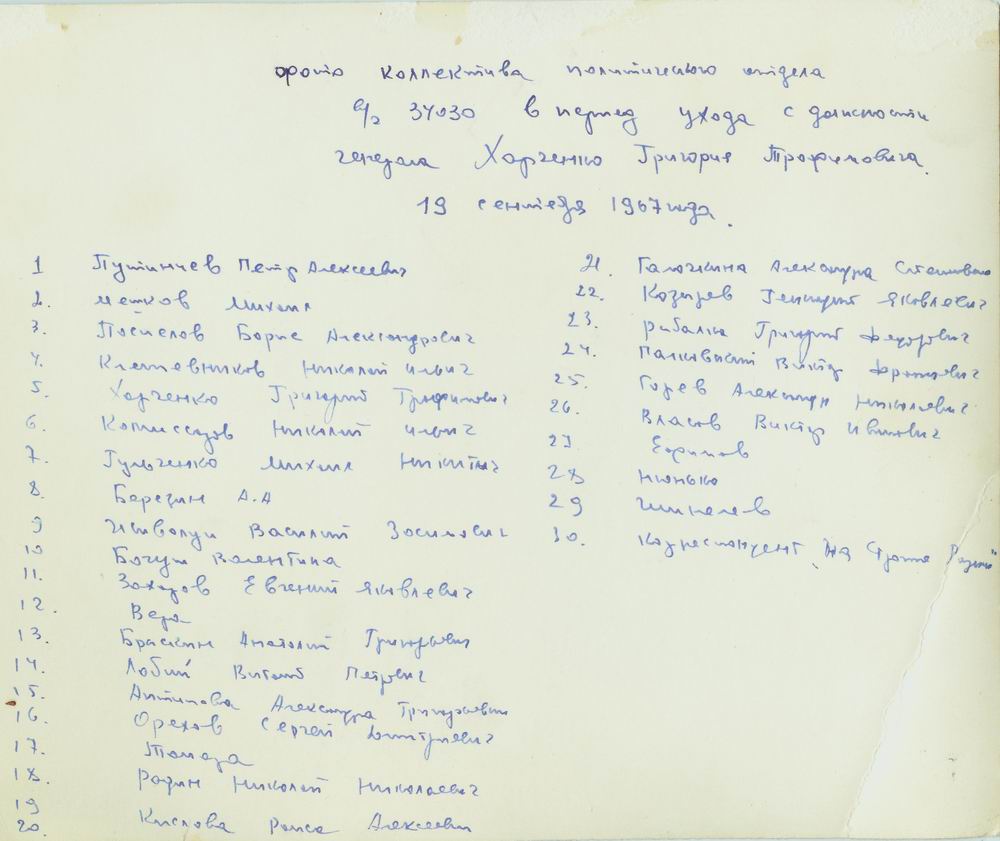 фото коллектива политического отдела
в/ч 34030 в период ухода с должности
генерала Харченко Григория Трофимовича.
19 сентября 1967 года.
1 Путинцев Петр Алексеевич
2. Михаил
3. Поспелов Борис Александрович
4. Николай Ильич
5. Харченко Григорий Трофимович
6. Комиссаров Николай Ильич
7. Гульченко Михаил Никитич
8. Березин А.А
9 Василий Зосимович
10 Бочун Валентина
11. Захаров Евгений Яковлевич
12. Вера
13. Браскин Анатолий Григорьевич
14. Лобий Виталий Петрович
15. Антипова Александра Григорьевна
16. Орехов Сергей Дмитриевич
17. Тамара
18. Родин Николай Николаевич
19
20. Кислова Раиса Алексеевна
21. Галочкина Александра Степановна
22. Козырев Геннадий Яковлевич
23. Рибалка Григорий Федорович
24. Виктор
25. Горев Александр Николаевич
26. Власов Виктор Иванович
27 Ефимов
28 Нюнько
29 Шипелев
30. Корреспондент "На Страже Родины"